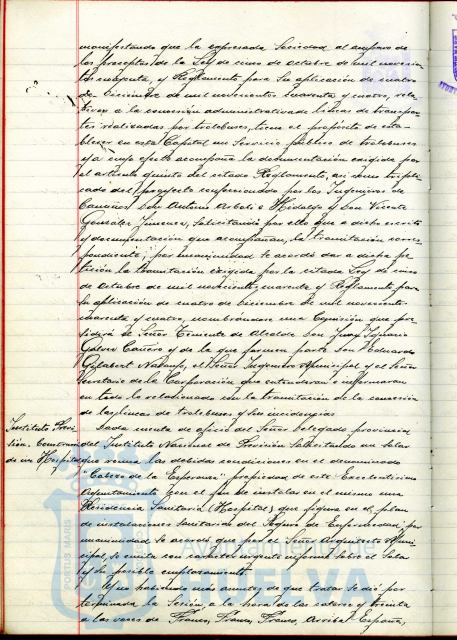 manifestando que la expresada Sociedad al amparo de
los preceptos de la Ley de cinco de Octubre de mil novecien-
tos cuarenta, y Reglamento para su aplicación de cuatro
de Diciembre de mil novecientos cuarenta y cuatro, rela-
tivos a la concesión administrativa de líneas de transpor-
tes realizadas por trolebuses, tiene el propósito de esta-
blecer en esta Capital un Servicio público de trolebuses
y a cuyo efecto acompaña la documentación exigida por
el artículo quinto del citado Reglamento, así como tripli-
cado del proyecto confeccionado por los Ingenieros de
Caminos Don Antonio Hidalgo y Don Vicente
González Jimenez, solicitando por ello que a dicho escrito
y documentación que acompañan, la tramitación corres-
pondiente; por unanimidad se acordó dar a dicha pe-
tición la tramitación exigida por la citada Ley de cinco
de Octubre de mil novecientos cuarenta y Reglamento para
su aplicación de cuatro de Diciembre de mil novecientos
cuarenta y cuatro, nombrándose una Comisión que pre-
sidirá el Señor Teniente de Alcalde Don Juan
Gálvez Cañero y de la que formen parte Don Eduardo
Gelabert el Señor Ingeniero Municipal y el Señor
Secretario de la Corporación que entenderán e informaran
en todo lo relacionado con la tramitación de la concesión
de las líneas de trolebuses y sus incidencias
Instituto Previ-
sión. Construcción
de un Hospital
Dada cuenta de oficio del Señor Delegado provincial
del Instituto Nacional de Previsión solicitando un solar
que reuna las debidas condiciones en el denominado
"Cabezo de la Esperanza" propiedad de este Excelentísimo
Ayuntamiento con el fin de instalar en el mismo una
Residencia Sanitaria (Hospital) que figura en el plan
de instalaciones sanitarias del Seguro de Enfermedad; por
unanimidad se acordó que por el Señor Arquitecto Muni-
cipal, se emita con carácter urgente informe sobre el Solar
y su posible emplazamiento.
Y no habiendo más asuntos de que tratar se dió por
terminada la Sesión, a la hora de las catorce y treinta
a las voces de Franco, Franco, Franco, Arriba España,
Ayuntamiento de
HUELVA
PORTUS MARIS